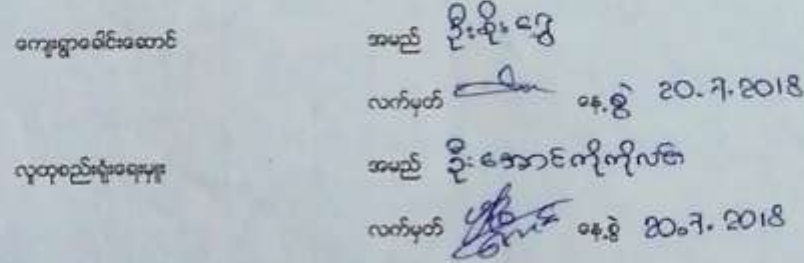 ကျေးရွာခေါင်းဆောင် အမည် ဦးစိုးရွှေ
လက်မှတ် နေ့စွဲ 20.7.2018
လူထုစည်းရုံးရေးမှူး အမည် ဦးအောင်ကိုကိုလတ်
လက်မှတ် နေ့စွဲ 20.7.2018